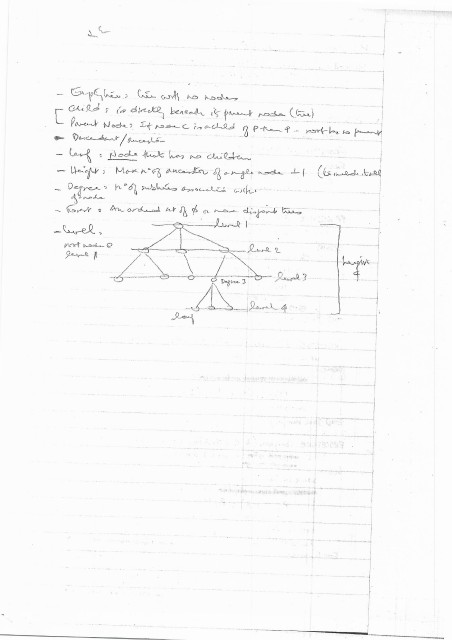 - Empty tree: tree with no nodes
- Child: is directly beneath its parent node (tree)
- Parent Node: If node C is a child of P then P - root has no parent
- Descendant / ancestor
- Leaf: Node that has no children
- Height: Max n° of ancestor of a single node +1
- Degree: n° of subtrees associated with
a node
- Forest: An ordered set of 0 or more disjoint trees
- Level:
root node
level
level 1
level 2
level 3
Degree 3
level 4
leaf
height
4